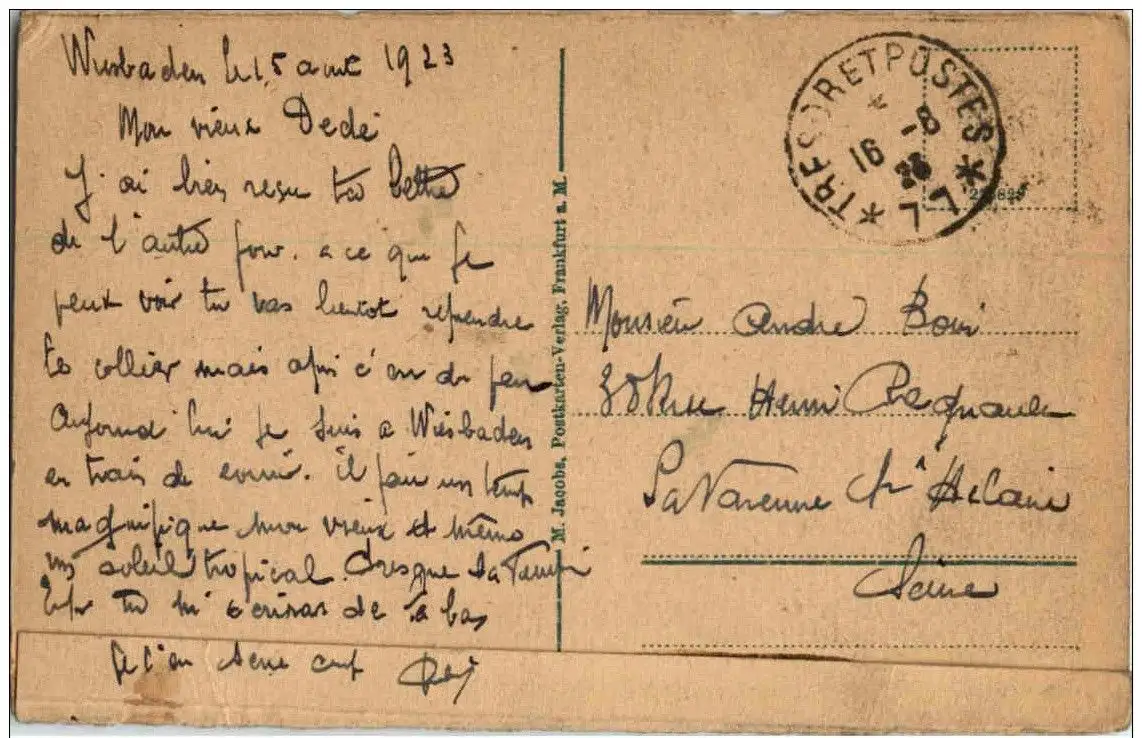 Wiesbaden le 15 aout 1923
Mon vieux Dedé
J'ai bien reçu ta lettre
de l'autre jour. a ce que je
peux voir tu vas bientot reprendre
le collier mais apres c'en du peu
Aujourd'hui je suis a Wiesbaden
en train de courir. il fait un temps
magnifique mon vieux et même
un soleil tropical.
tu m'ecriras de la bas
Je t'en serre cinq
M. Jacobs, Postkarten-Verlag, Frankfurt a. M.
TRESOR ET POSTES
* 77 *
16 -8
Monsieur André
Rue Henri Regnault
La Varenne St Hilaire
Seine